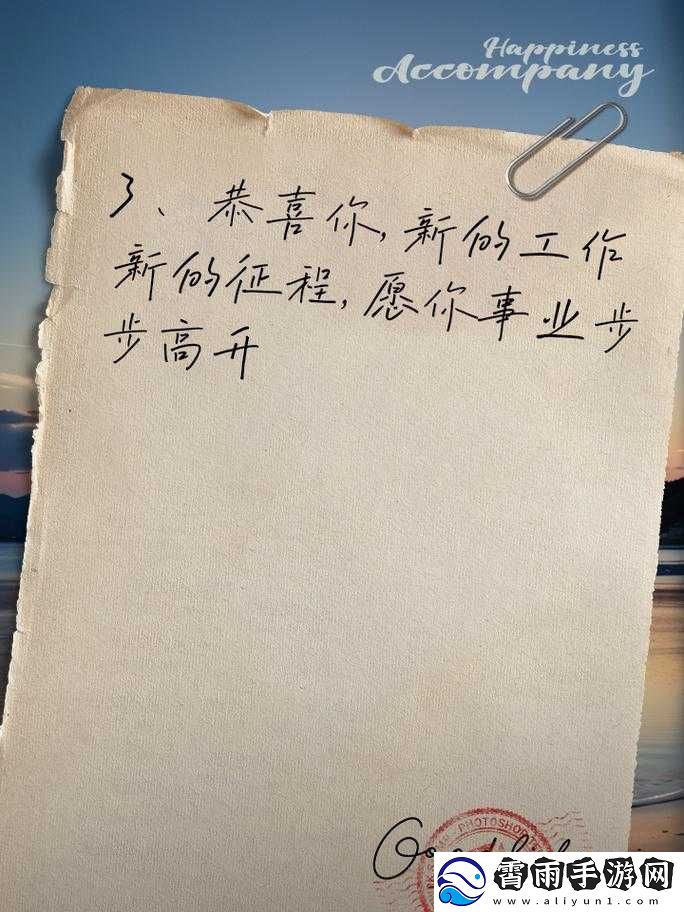 Happiness
Accompany
3、恭喜你,新的工作
新的征程,愿你事业步
步高升
PHOTOSHOP
霄雨手游网
www.aliyun1.com